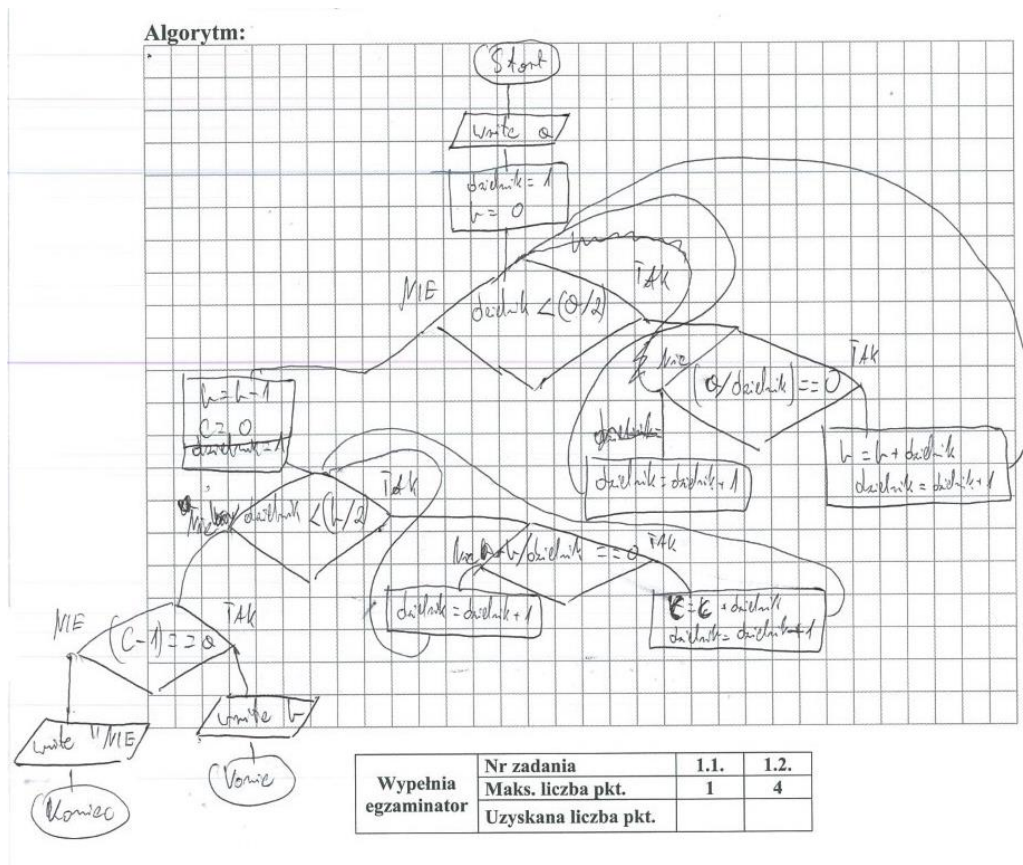 Algorytm:
Start
write a
dzielnik = 1
b = 0
NIE
TAK
dzielnik < (a/2)
Nie
TAK
(a/dzielnik) == 0
b = b - 1
c = 0
dzielnik = 1
dzielnik = dzielnik + 1
b = b + dzielnik
dzielnik = dzielnik + 1
TAK
dzielnik < (b/2)
b/dzielnik == 0
TAK
dzielnik = dzielnik + 1
c = c + dzielnik
dzielnik = dzielnik + 1
NIE
TAK
(c-1) == a
write "NIE
write b
Koniec
Koniec
Wypełnia
egzaminator
Nr zadania 1.1. 1.2.
Maks. liczba pkt. 1 4
Uzyskana liczba pkt.